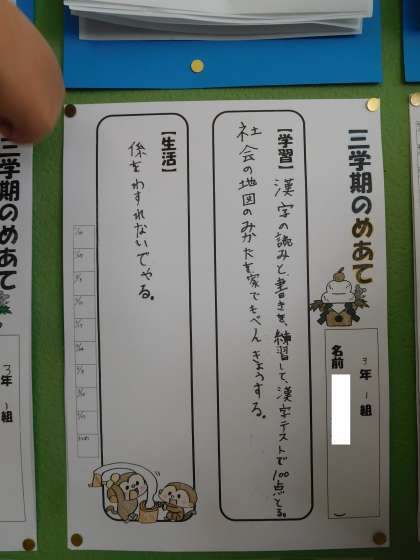 三学期のめあて
3年1組
名前
【学習】漢字の読みと、書きを、練習して、漢字テストで100点とる。
社会の地図のみかたを家でもべんきょうする。
【生活】
係をわすれないでやる。
三学期のめあて
3年1組